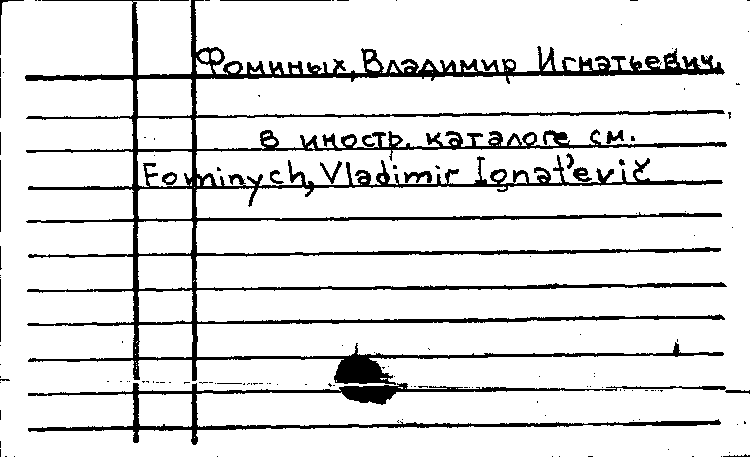 Фоминых, Владимир Игнатьевич.
в иностр. каталоге см.
Fominych, Vladimir Ignat'evič